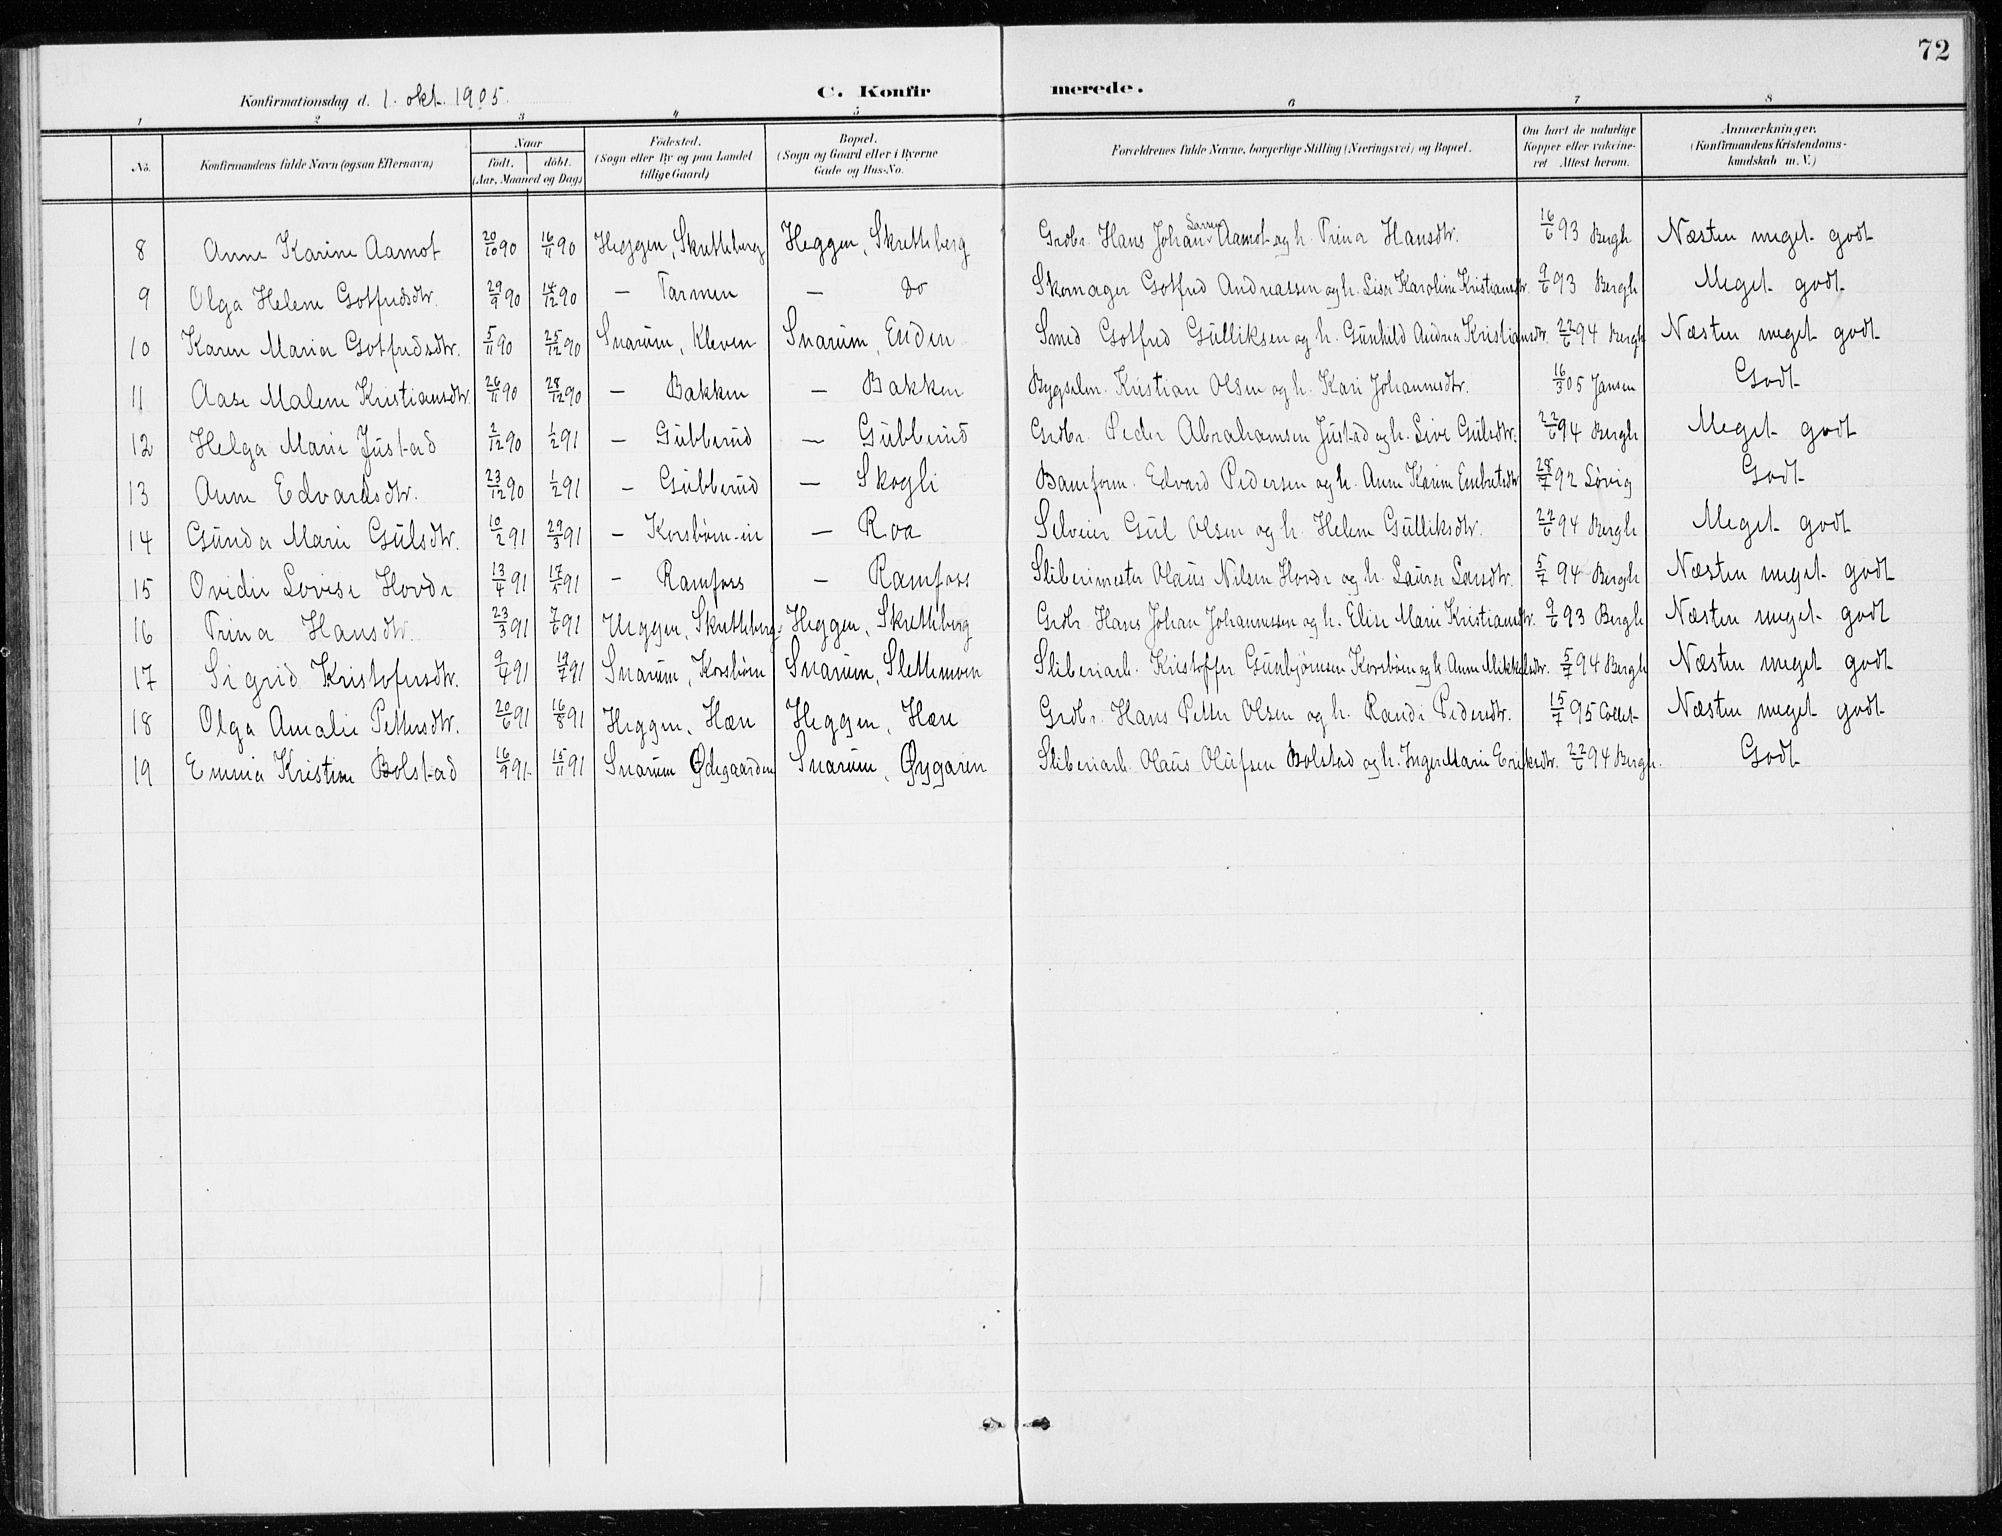 72
Konfirmationsdag d. 1. okt. 1905.
C. Konfirmerede.
1 2 3 4 5 6 7 8
No. Konfirmandens fulde Navn (ogsaa Efternavn) Naar født. døbt. (Aar, Maaned og Dag) Fødested. (Sogn eller By og paa Landet tillige Gaard) Bopæl. (Sogn og Gaard eller i Byerne Gade og Hus-No. Forældrenes fulde Navne, borgerlige Stilling (Næringsvei) og Bopæl. Om havt de naturlige Kopper eller vaccineret Attest herom. Anmærkninger. (Konfirmandens Kristendomskundskab m. V.)
8 Anne Karine Aamot 20/10 90 16/11 90 Heggen, Skretteberg Heggen, Skretteberg Grdbr. Hans Johan Larsen Aamot og h. Trina Hansdtr. 16/6 93 Bergh Næsten meget godt
9 Olga Helene Gotfredsdtr. 29/9 90 14/12 90 — Tarmen — do Skomager Gotfred Andreassen og h. Lisa Karoline Kristiansdtr. 9/6 93 Bergh Meget godt
10 Karen Maria Gotfredsdtr. 5/11 90 25/12 90 Snarum, Kleven Snarum, Enden Smed Gotfred Gulliksen og h. Gunhild Andrea Kristiansdtr. 22/6 94 Bergh Næsten meget godt
11 Aase Malene Kristiansdtr. 26/11 90 28/12 90 — Bakken — Bakken Bygselm. Kristian Olsen og h. Kari Johannesdtr. 16/3 05 Jansen Godt
12 Helga Marie Justad 2/12 90 1/2 91 — Gubberud — Gubberud Grdbr. Peder Abrahamsen Justad og h. Live Gulsdtr. 22/6 94 Bergh Meget godt
13 Anne Edvardsdtr. 23/12 90 1/2 91 — Gubberud — Skogli Baneform. Edvard Pedersen og h. Anne Karine Embretsdtr. 28/7 92 Løvig Godt
14 Gunda Marie Gulsdtr. 10/2 91 29/3 91 — Korsbøen-eie — Roa Selveier Gul Olsen og h. Helene Gulliksdtr. 22/6 94 Bergh Meget godt
15 Ovidie Lovise Hovde 13/4 91 17/5 91 — Ramfoss — Ramfoss Sliberimester Olaus Nilsen Hovde og h. Laura Larsdtr. 5/7 94 Bergh Næsten meget godt
16 Trina Hansdtr. 23/3 91 7/6 91 Heggen, Skretteberg Heggen, Skretteberg Grdbr. Hans Johan Johannessen og h. Elise Marie Kristiansdtr. 9/6 93 Bergh Næsten meget godt
17 Sigrid Kristofersdtr. 9/4 91 19/7 91 Snarum, Korsbøen Snarum, Slettemoen Sliberiarb. Kristoffer Gunbjørnsen Korsbøen og h. Anne Mikkelsdtr. 5/7 94 Bergh Næsten meget godt
18 Olga Amalie Pettersdtr. 20/6 91 16/8 91 Heggen, Hæn Heggen, Hæn Grdbr. Hans Petter Olsen og h. Randi Pedersdtr. 15/7 95 Collet Næsten meget godt
19 Emma Kristine Bolstad 16/9 91 15/11 91 Snarum Ødegaarden Snarum, Øygaren Sliberiarb. Olaus Olufsen Bolstad og h. Inger Marie Eriksdtr. 22/6 94 Bergh. Godt